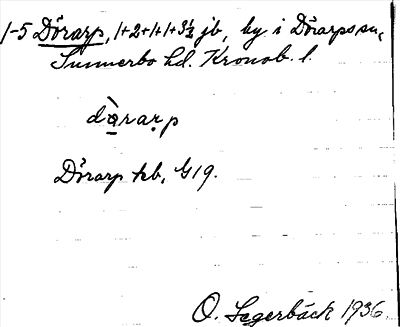 1-5 Dörarp, 1+2+1+1+3½ jb, by i Dörarps sn,
Sunnerbo hd. Kronob. l.
dàrarp
Dörarp kb, G 19.
O. Lagerbäck 1936.